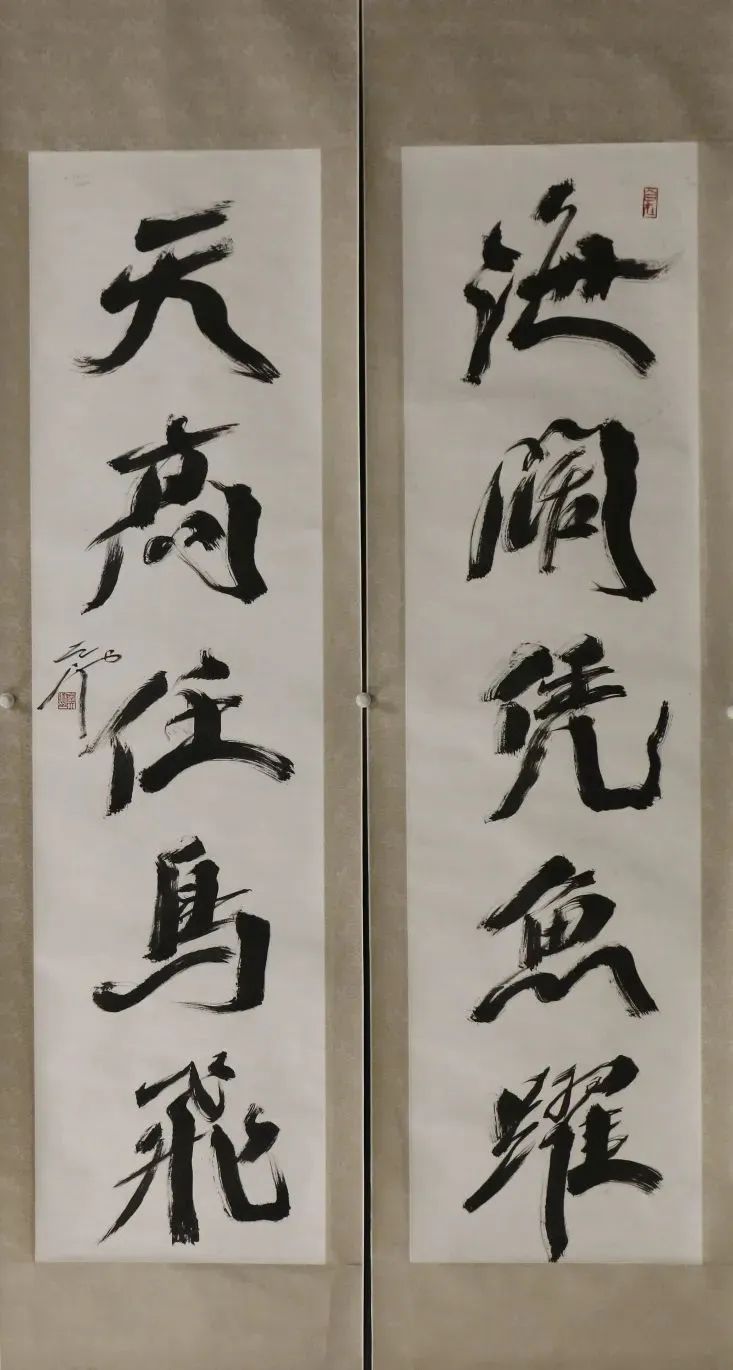 海闊凭魚躍
天高任鳥飛